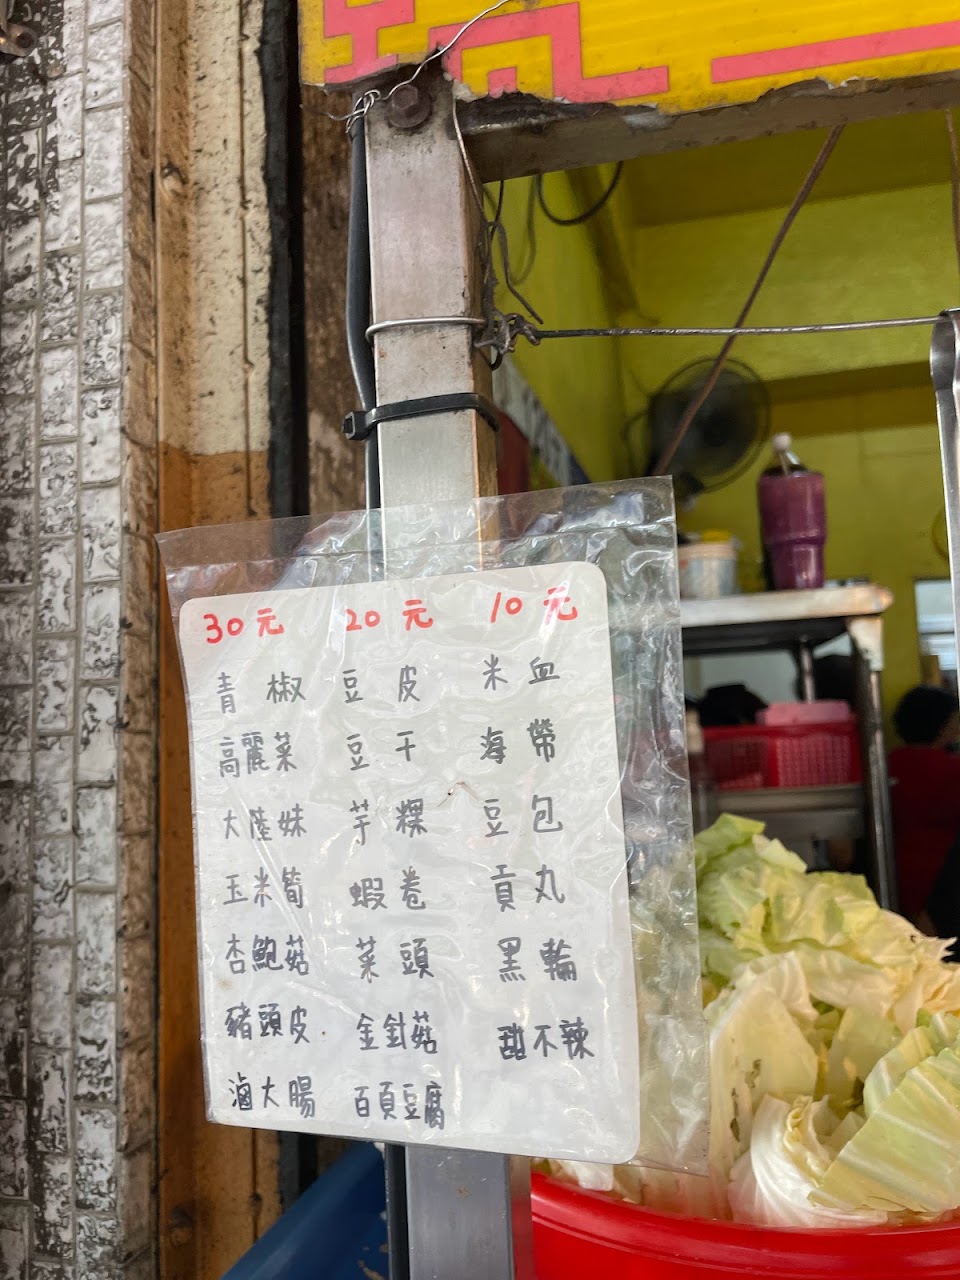 30元 20元 10元
青椒 豆皮 米血
高麗菜 豆干 海帶
大陸妹 芋粿 豆包
玉米筍 蝦卷 貢丸
杏鮑菇 菜頭 黑輪
豬頭皮 金針菇 甜不辣
滷大腸 百頁豆腐